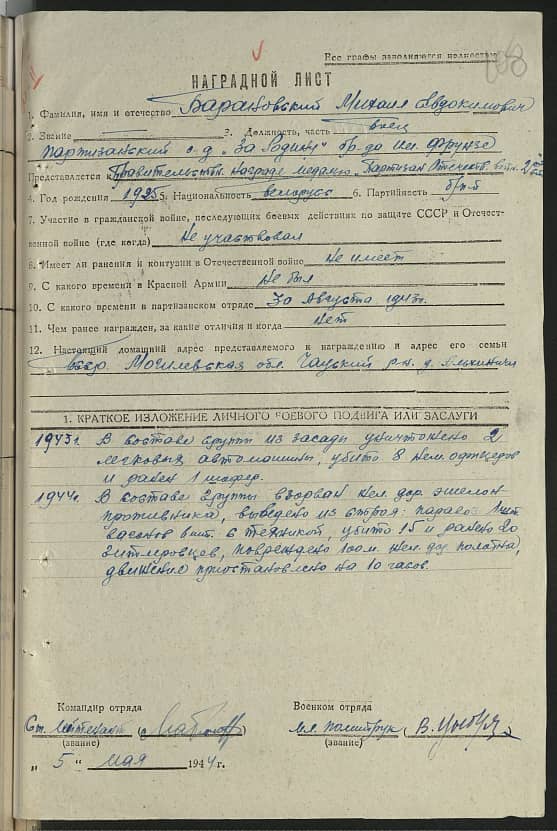 Все графы заполняются полностью
НАГРАДНОЙ ЛИСТ
1. Фамилия, имя и отчество Барановский Михаил Евдокимович
2. Звание 3. Должность, часть боец
партизанский о-д "За Родину" бр-да им. Фрунзе
Представляется к Правительств. награде медалью "Партизан Отечеств. войны" 2
4. Год рождения 1925 5. Национальность белорус 6. Партийность б/п
7. Участие в гражданской войне, последующих боевых действиях по защите СССР и Отечест-
венной войне (где когда) Не участвовал
8. Имеет ли ранения и контузии в Отечественной войне Не имеет
9. С какого времени в Красной Армии Не был
10. С какого времени в партизанском отряде 30 Августа 1943 г.
11. Чем ранее награжден, за какие отличия и когда нет
12. Настоящий домашний адрес представляемого к награждению и адрес его семьи
БССР Могилевская обл. Чаусский р-н д.
1. КРАТКОЕ ИЗЛОЖЕНИЕ ЛИЧНОГО БОЕВОГО ПОДВИГА ИЛИ ЗАСЛУГИ
1943 г. В составе группы из засады уничтожено 2
легковых автомашины, убито 8 нем. офицеров
и ранен 1 шофер.
1944 г. В составе группы взорван жел. дор. эшелон
противника, выведено из строя: паровоз 1 шт
вагонов 8 шт. с техникой, убито 15 и ранено 20
гитлеровцев, повреждено 100 м. жел. дор. полотна,
движение приостановлено на 10 часов.
Командир отряда Военком отряда
Ст. лейтенант мл. политрук
(звание) (звание)
" 5 " мая 1944 г.